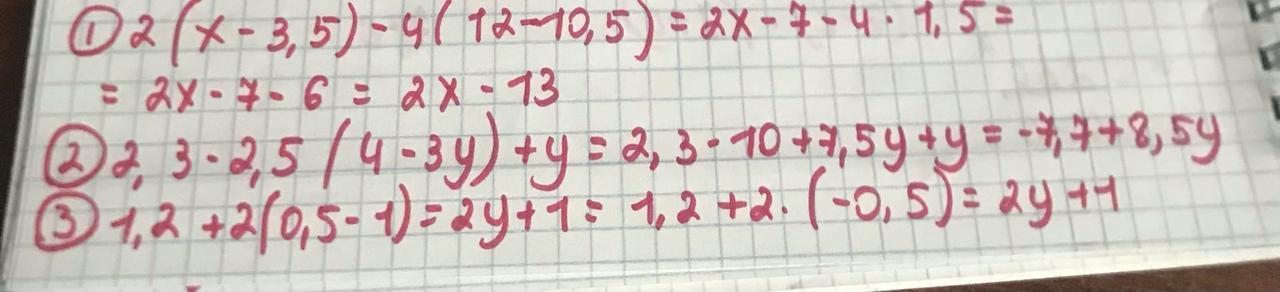 ① 2(x-3,5)-4(12-10,5)=2x-7-4·1,5=
=2x-7-6=2x-13
② 2,3-2,5(4-3y)+y=2,3-10+7,5y+y=-7,7+8,5y
③ 1,2+2(0,5-1)=2y+1=1,2+2·(-0,5)=2y+1